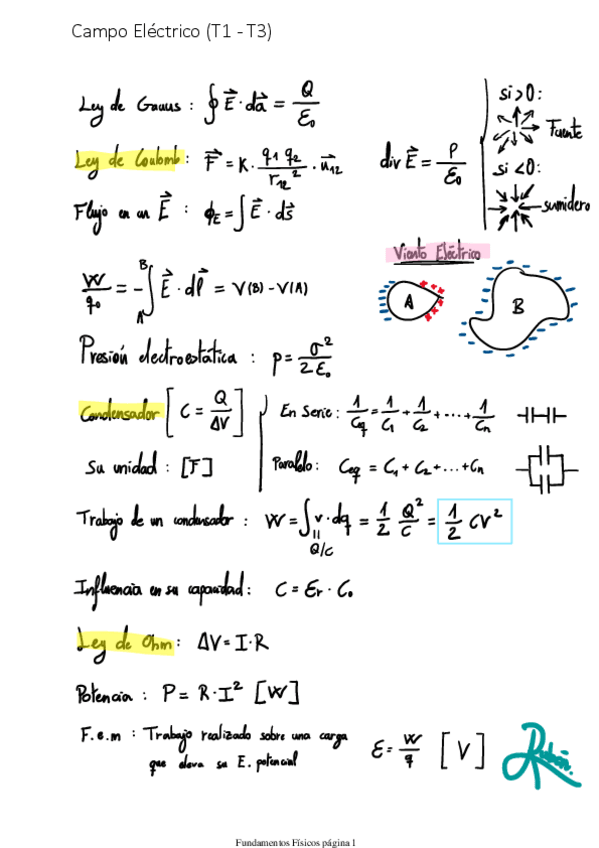 Campo Eléctrico (T1 - T3)
Ley de Gauus : ∮ E⃗ · da⃗ = Q/ε₀
Ley de Coulomb : F⃗ = K · q₁ q₂ / r₁₂² · u⃗₁₂
div E⃗ = ρ/ε₀
si > 0 :
Fuente
si < 0 :
sumidero
Flujo en un E⃗ : ϕ_E = ∫ E⃗ · ds⃗
Viento Eléctrico
A
B
W/q₀ = - ∫_A^B E⃗ · dl⃗ = V(B) - V(A)
Presión electroestática : p = σ²/2ε₀
Condensador [ C = Q/ΔV ]
En Serie : 1/Ceq = 1/C₁ + 1/C₂ + ... + 1/Cn
Su unidad : [F]
Paralelo : Ceq = C₁ + C₂ + ... + Cn
Trabajo de un condensador : W = ∫ v · dq = 1/2 Q²/C = 1/2 CV²
Q/C
Influencia en su capacidad : C = Er · C₀
Ley de Ohm : ΔV = I · R
Potencia : P = R · I² [W]
F.e.m : Trabajo realizado sobre una carga
que eleva su E. potencial
ε = W/q [V]
Rubén.
Fundamentos Físicos página 1